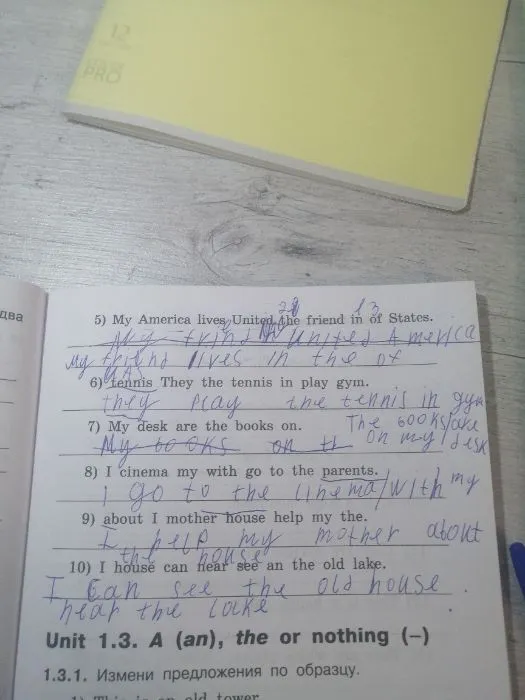 12
PRO
два
5) My America lives United the friend in of States.
My frind United America
My friend lives in the of
USA
6) tennis They the tennis in play gym.
they play the tennis in gym
7) My desk are the books on.
The books are
My books on th
on my desk
8) I cinema my with go to the parents.
I go to the cinema with my
9) about I mother house help my the.
I help my mother about
the house
10) I house can near see an the old lake.
I can see the old house
near the lake
Unit 1.3. A (an), the or nothing (–)
1.3.1. Измени предложения по образцу.
1) This is an old tower.